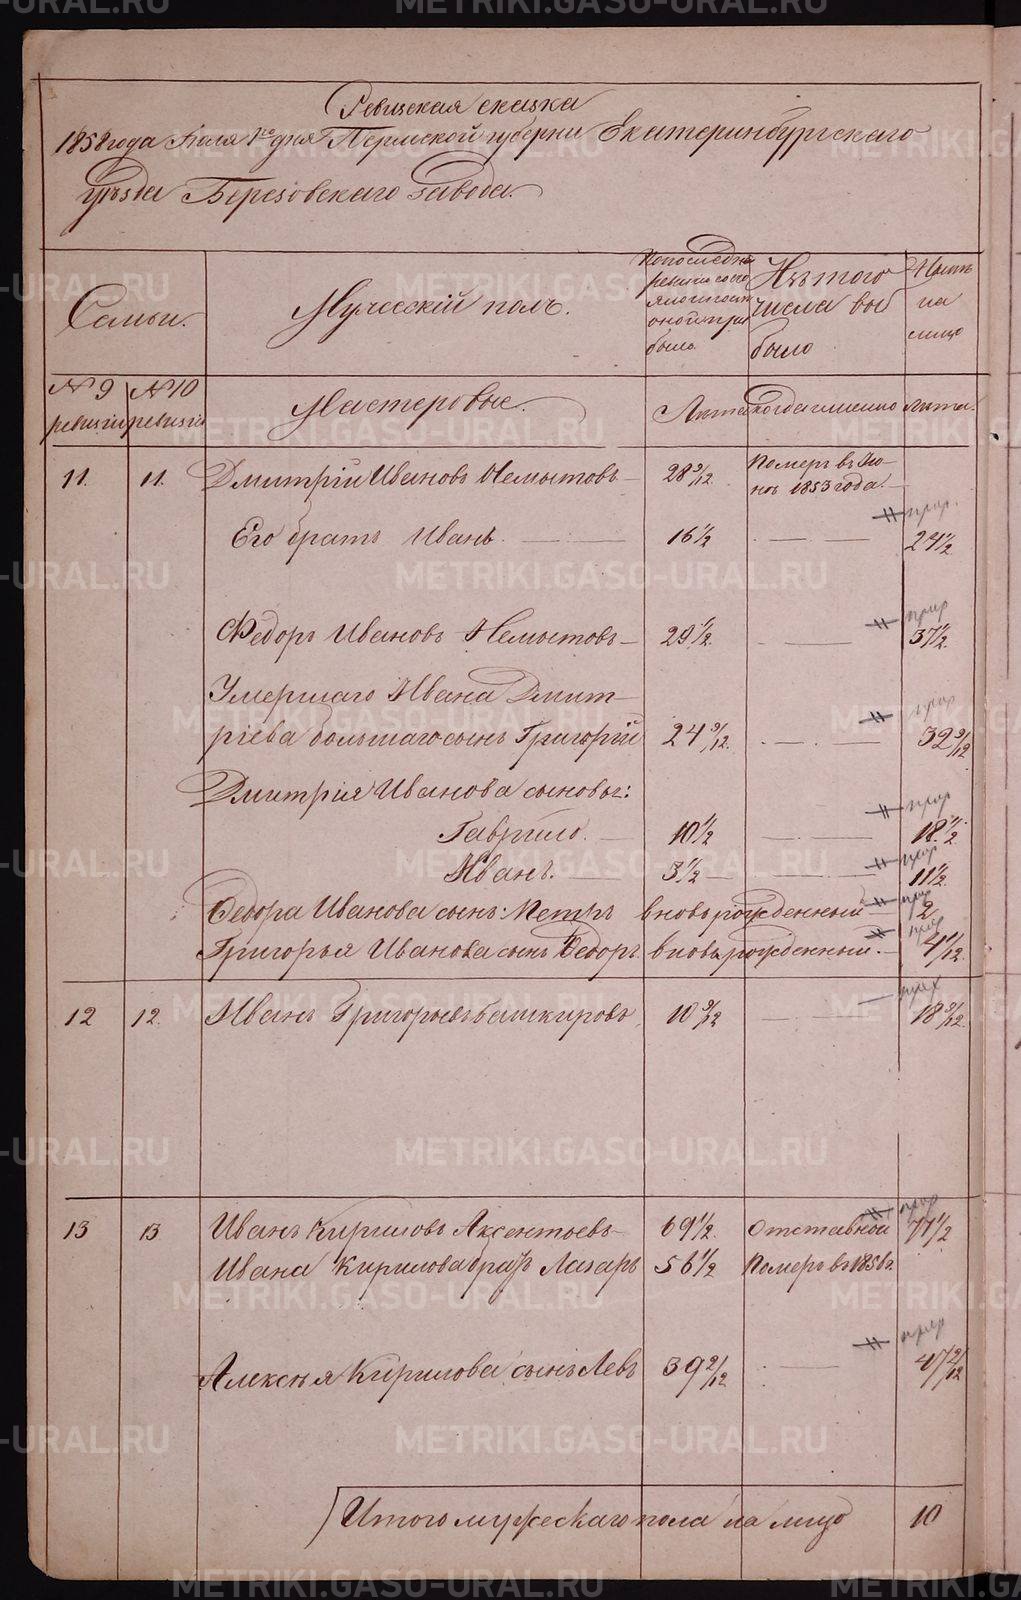 Ревизская сказка
1858 года Июля 1го дня Пермской губернии Екатеринбургскаго
уѣзда Березовскаго завода.
Семьи.
Мужескій полъ.
По последней
ревизіи состо
яло и после
оной при
было
Изъ того
числа вы
было
Нынѣ
на
лицо
№ 9
ревизіи
№ 10
ревизіи
Мастеровые.
Лѣта
когда именно
лѣта.
11. 11. Дмитрій Ивановъ Немытовъ 28 9/12. Померъ въ Ію-
нѣ 1853 года.
Его братъ Иванъ. 16 1/2 24 1/2
Федоръ Ивановъ Немытовъ 29 1/2. 37 1/2.
Умершаго Ивана Дмит-
ріева большаго сынъ Григорій 24 9/12. 32 9/12
Дмитрія Иванова сыновья:
Гаврило. 10 1/2 18 1/2.
Иванъ. 3 1/2 11 1/2.
Федора Иванова сынъ: Петръ вновь рожденный 2
Григорья Иванова сынъ Федоръ. вновь рожденный. 4 1/12.
12 12. Иванъ Григорьевъ Башкировъ 10 9/12 18 9/12.
13 13 Иванъ Кириловъ Аксентьевъ 69 1/2. Отставной 77 1/2
Ивана Кирилова братъ Лазарь 56 1/2 Померъ въ 1856 г.
Алексѣя Кирилова сынъ Левъ 39 2/12 47 2/12
Итого мужескаго пола на лицо 10
METRIKI.GASO-URAL.RU